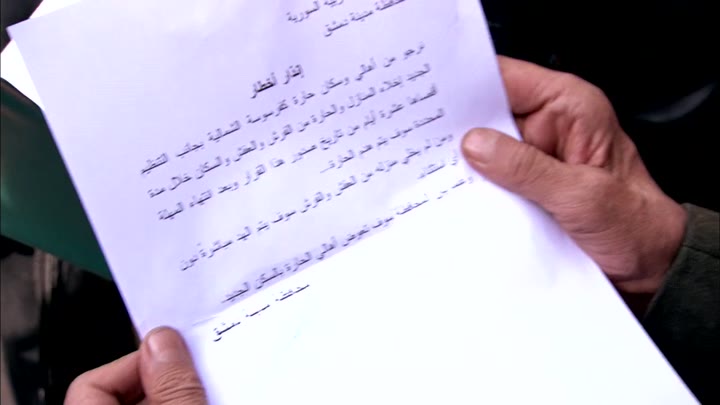 العربية السورية
محافظة مدينة دمشق
إنذار أخطار
نرجو من أهالي وسكان حارة كفرسوسة الشمالية بجانب التنظيم
الجديد إخلاء المنازل والحارة من الفرش والعفش والسكان خلال مدة
أقصاها عشرة أيام من تاريخ صدور هذا القرار وبعد انتهاء المهلة
المحددة سوف يتم هدم الحارة...
ومن لم يخلي منزله من العفش والفرش سوف يتم الهد مباشرة دون
أي استثناء.
سوف تعوض أهالي الحارة بالسكن الجديد.
محافظة مدينة دمشق